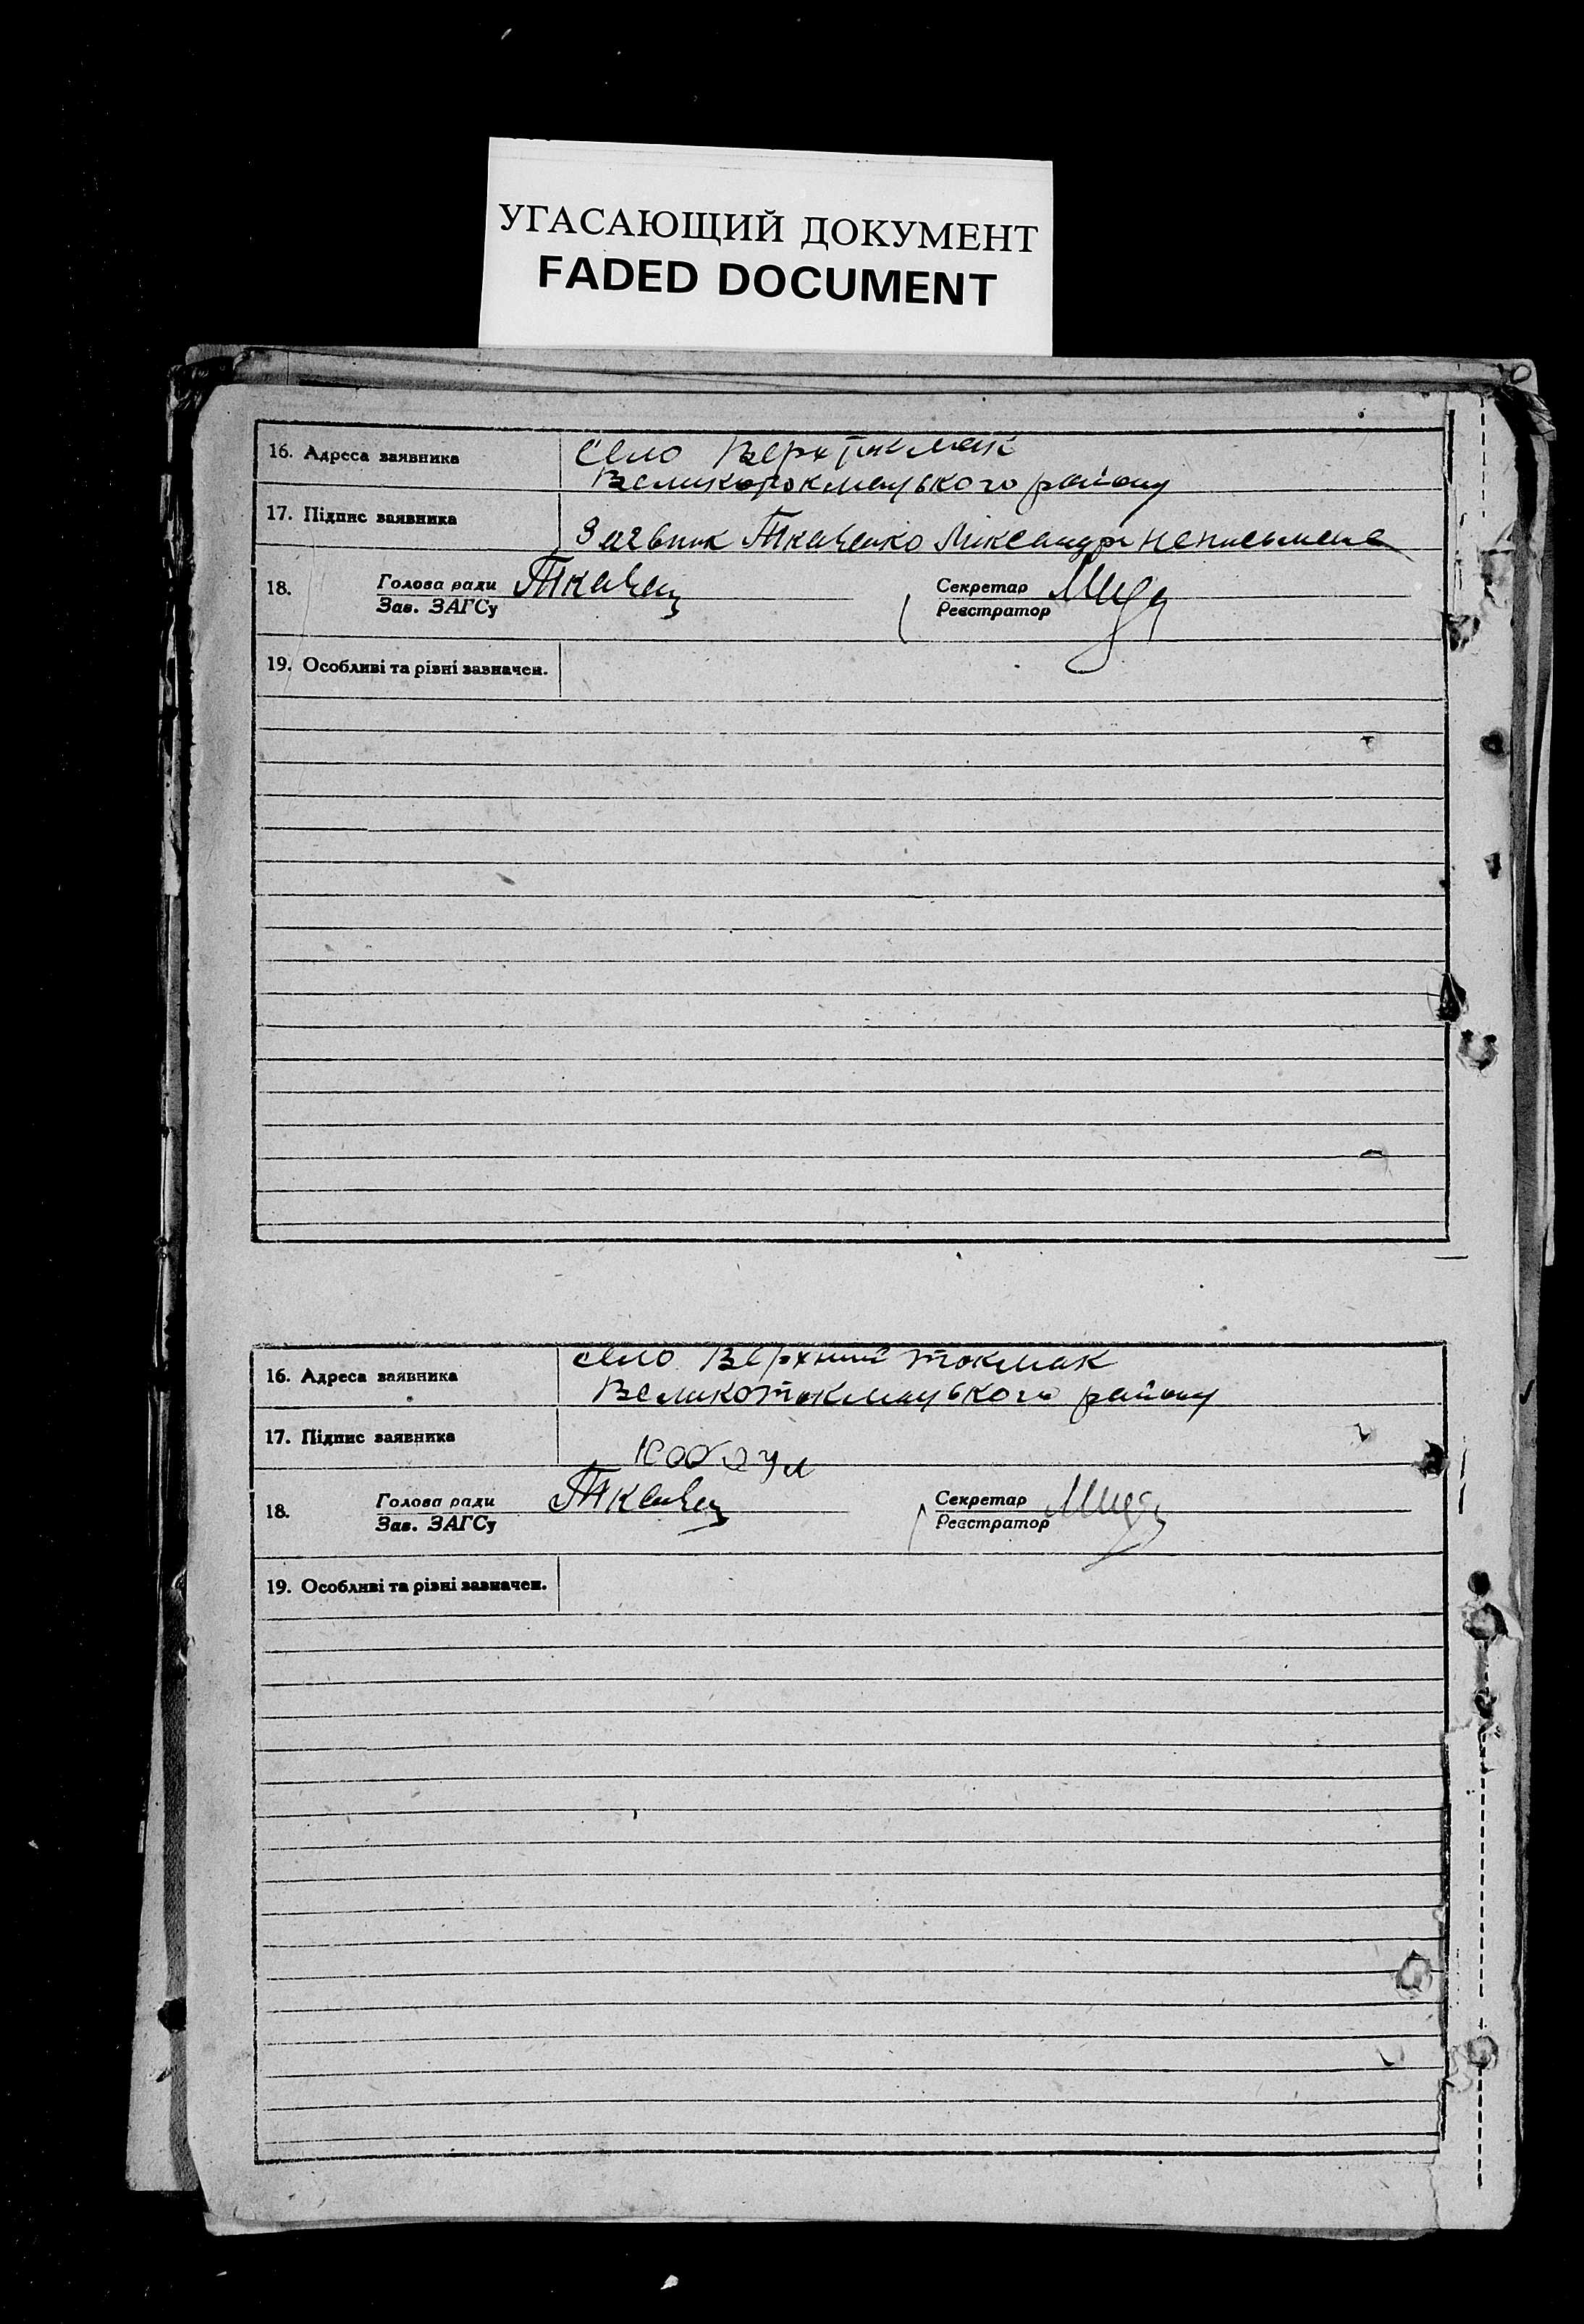 УГАСАЮЩИЙ ДОКУМЕНТ
FADED DOCUMENT
16. Адреса заявника
село Верх Токмак
Великотокмацького району
17. Підпис заявника
Заявник Ткаченко неписьмена
18. Голова ради
Зав. ЗАГСу
Секретар
Реєстратор
19. Особливі та різні зазначен.
16. Адреса заявника
село Верхний токмак
Великотокмацького району
17. Підпис заявника
18. Голова ради
Зав. ЗАГСу
Секретар
Реєстратор
19. Особливі та різні зазначен.